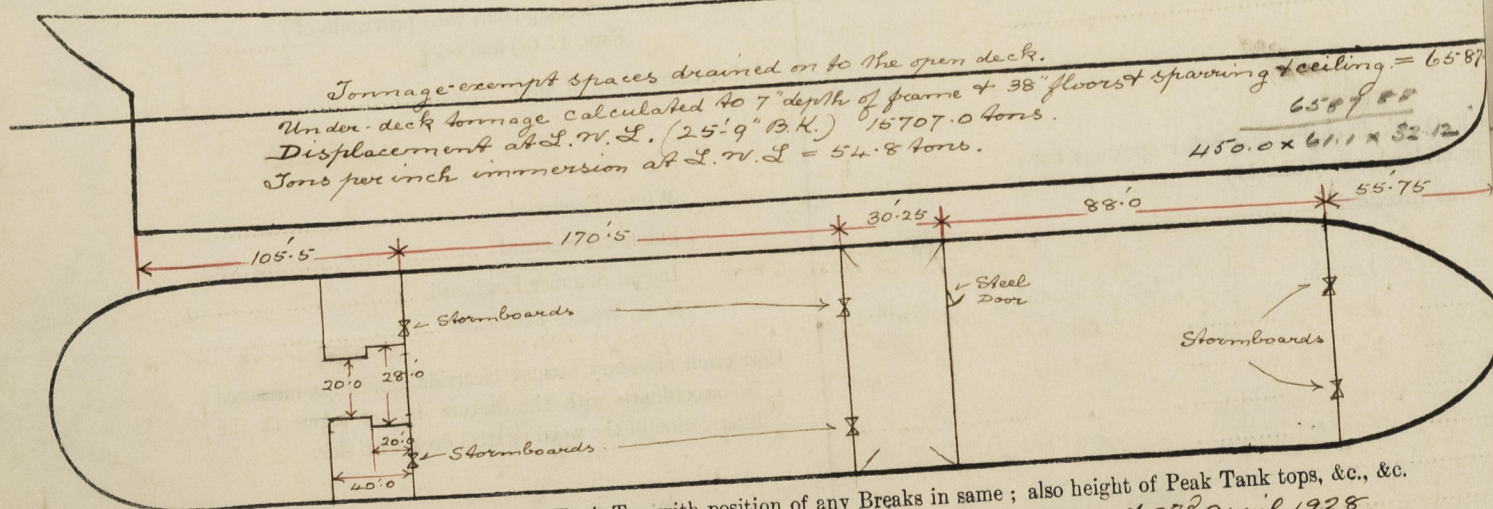 Tonnage-exempt spaces drained on to the open deck.
Under-deck tonnage calculated to 7" depth of frame & 38" floors & sparring & ceiling = 6587
Displacement at L.W.L. (25'-9" B.K.) 15707.0 tons.
Tons per inch immersion at L.W.L = 54.8 tons.
450.0 × 61.1 × 32.12
105'.5
170'.5
30'.25
88'.0
55'.75
Steel
Door
Stormboards
Stormboards
20'.0
28'.0
20'.0
Stormboards
40'.0
with position of any Breaks in same ; also height of Peak Tank tops, &c., &c.
1928